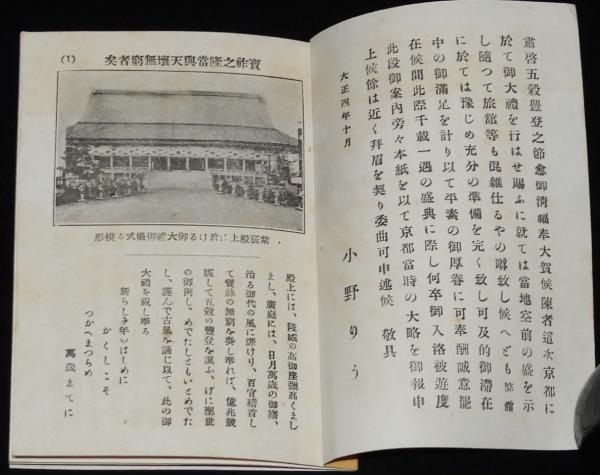 肅啓五穀豊登之節愈御淸福奉大賀候陳者這次京都に
於て御大禮を行はせ賜ふに就ては當地空前の盛を示
し隨つて旅舘等も混雜仕るやの噂致し候へども弊舘
に於ては豫じめ充分の準備を完く致し可及的御滯在
中の御滿足を計り以て平素の御厚眷に可奉酬誠意罷
在候間此際千載一遇の盛典に際し何卒御入洛被遊度
此段御案內旁々本紙を以て京都當時の大略を御報申
上候餘は近く拜眉を契り委曲可申述候　敬具
大正四年十月
小野りう
(1)
寶祚之隆當與天壤無窮者矣
紫宸殿上に於ける御大禮御儀式の模形
殿上には、陵威の高御座彌高くまし
まし、廣庭には、日月萬歲の御旛、
治る御代の風に靡けり、百官稽首し
て寶祚の無窮を奏し奉れば、億兆皷
腹して五穀の豐登を謳ふ、げに聖世
の御例し、めでたしともいとめでた
し、謹んで古風を誦じ以て、此の御
大禮を祝し奉る
新らしき年のはじめに
かくしこそ
つかへまつらめ
萬歲までに